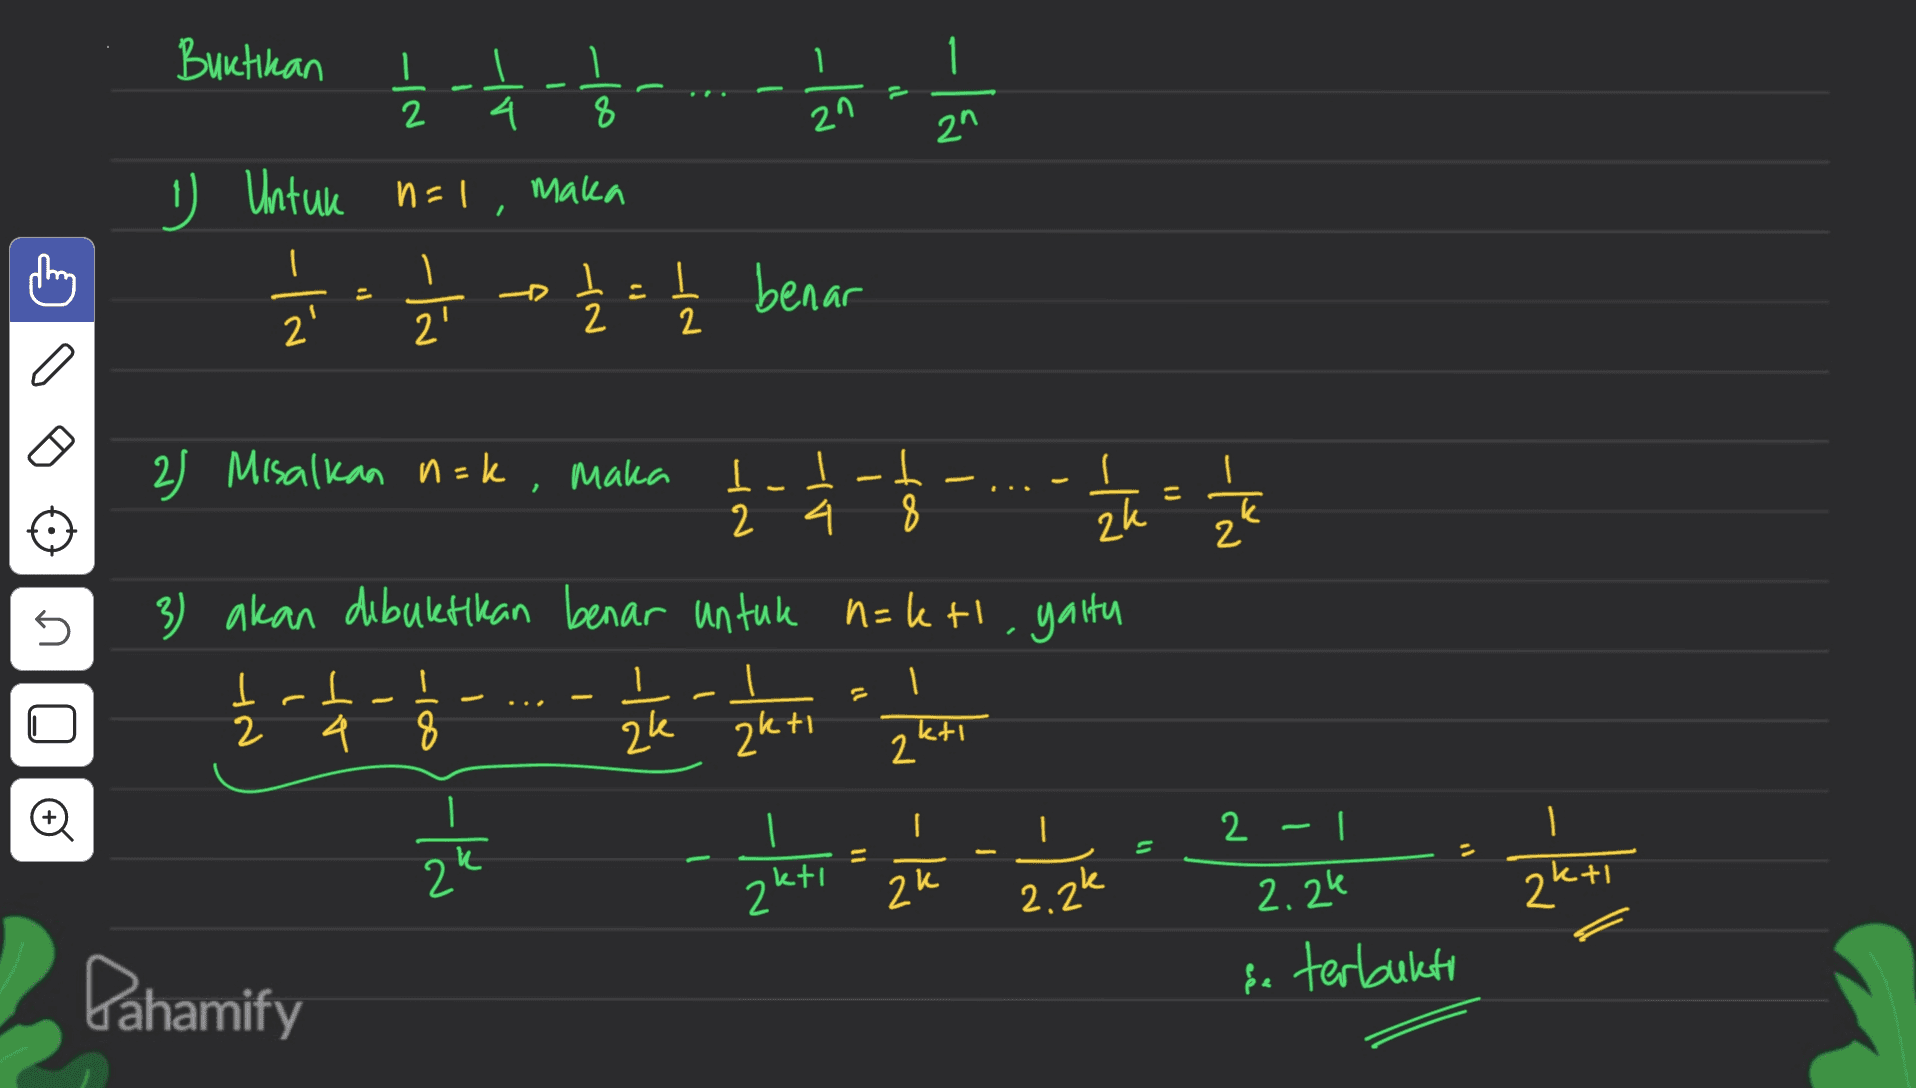 Buktikan 1/2 - 1/4 - 1/8 - ... - 1/2ⁿ = 1/2ⁿ
1) Untuk n=1, maka
1/2¹ = 1/2¹ → 1/2 = 1/2 benar
2) Misalkan n=k, maka 1/2 - 1/4 - 1/8 - ... - 1/2ᵏ = 1/2ᵏ
3) akan dibuktikan benar untuk n=k+1, yaitu
1/2 - 1/4 - 1/8 - ... - 1/2ᵏ - 1/2ᵏ⁺¹ = 1/2ᵏ⁺¹
1/2ᵏ - 1/2ᵏ⁺¹ = 1/2ᵏ - 1/2.2ᵏ = 2-1/2.2ᵏ = 1/2ᵏ⁺¹
∴ terbukti
Pahamify